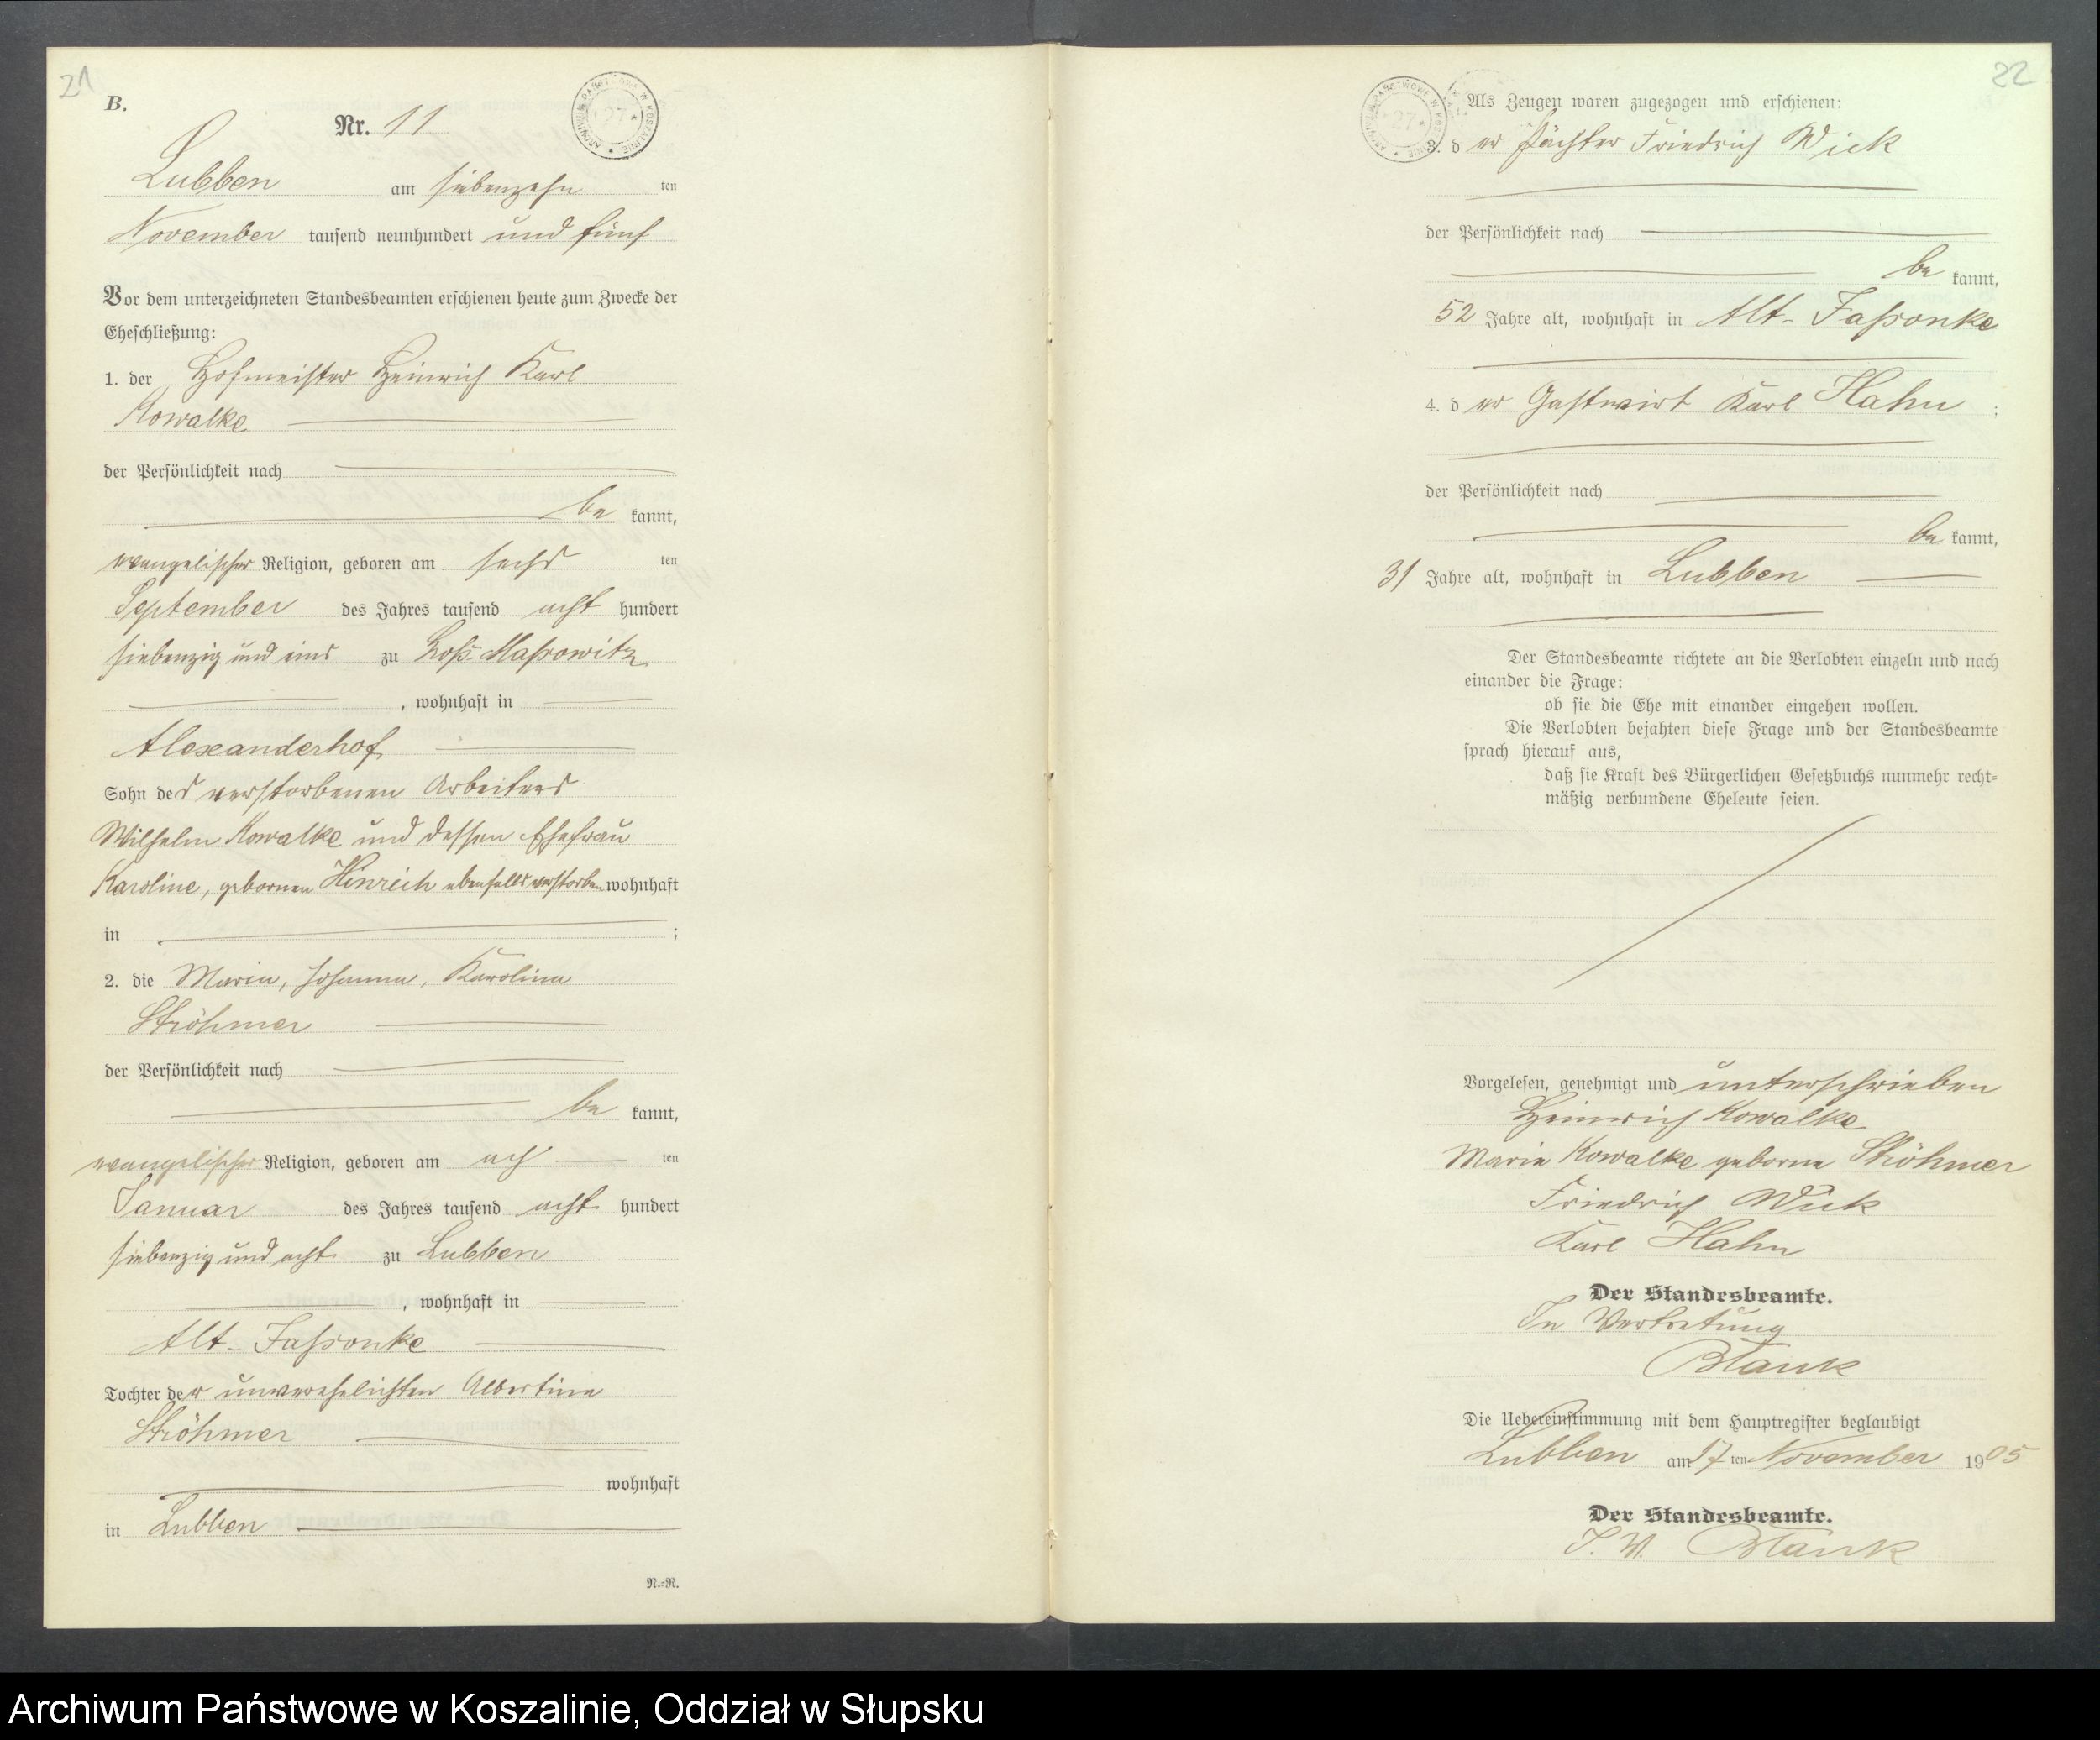 21
B.
Nr. 11
Lubben am siebenzehn ten
November tausend neunhundert und fünf
Vor dem unterzeichneten Standesbeamten erschienen heute zum Zwecke der
Eheschließung:
1. der Hofmeister Heinrich Karl
Kowalke
der Persönlichkeit nach
be kannt,
evangelischer Religion, geboren am sechs ten
September des Jahres tausend acht hundert
siebenzig und eins zu Massowitz
, wohnhaft in
Alexanderhof
Sohn des verstorbenen Arbeiters
Wilhelm Kowalke und dessen Ehefrau
Karoline, gebornen Hinrich ebenfalls verstorben wohnhaft
in ;
2. die Marie, Johanna, Karoline
Ströhmer
der Persönlichkeit nach
be kannt,
evangelischer Religion, geboren am ach ten
Januar des Jahres tausend acht hundert
siebenzig und acht zu Lubben
, wohnhaft in
Alt-Jassonke
Tochter der unverehelichten Albertine
Ströhmer
wohnhaft
in Lubben
N.-R.
ARCHIWUM PAŃSTWOWE W KOSZALINIE
27
22
Als Zeugen waren zugezogen und erschienen:
3. der Pächter Friedrich Wick
der Persönlichkeit nach
be kannt,
52 Jahre alt, wohnhaft in Alt-Jassonke
4. der Gastwirt Karl Hahn ;
der Persönlichkeit nach
be kannt,
31 Jahre alt, wohnhaft in Lubben
Der Standesbeamte richtete an die Verlobten einzeln und nach
einander die Frage:
ob sie die Ehe mit einander eingehen wollen.
Die Verlobten bejahten diese Frage und der Standesbeamte
sprach hierauf aus,
daß sie Kraft des Bürgerlichen Gesetzbuchs nunmehr recht-
mäßig verbundene Eheleute seien.
Vorgelesen, genehmigt und unterschrieben
Heinrich Kowalke
Marie Kowalke geborne Ströhmer
Friedrich Wick
Karl Hahn
Der Standesbeamte.
In Vertretung
Blank
Die Uebereinstimmung mit dem Hauptregister beglaubigt
Lubben am 17 ten November 1905
Der Standesbeamte.
I. V. Blank
ARCHIWUM PAŃSTWOWE W KOSZALINIE
27
Archiwum Państwowe w Koszalinie, Oddział w Słupsku